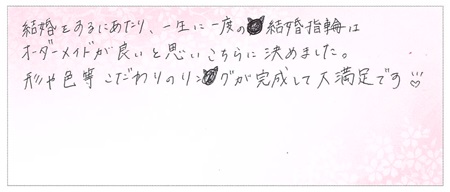 結婚をするにあたり、一生に一度の結婚指輪は
オーダーメイドが良いと思いこちらに決めました。
形や色等こだわりのリングが完成して大満足です